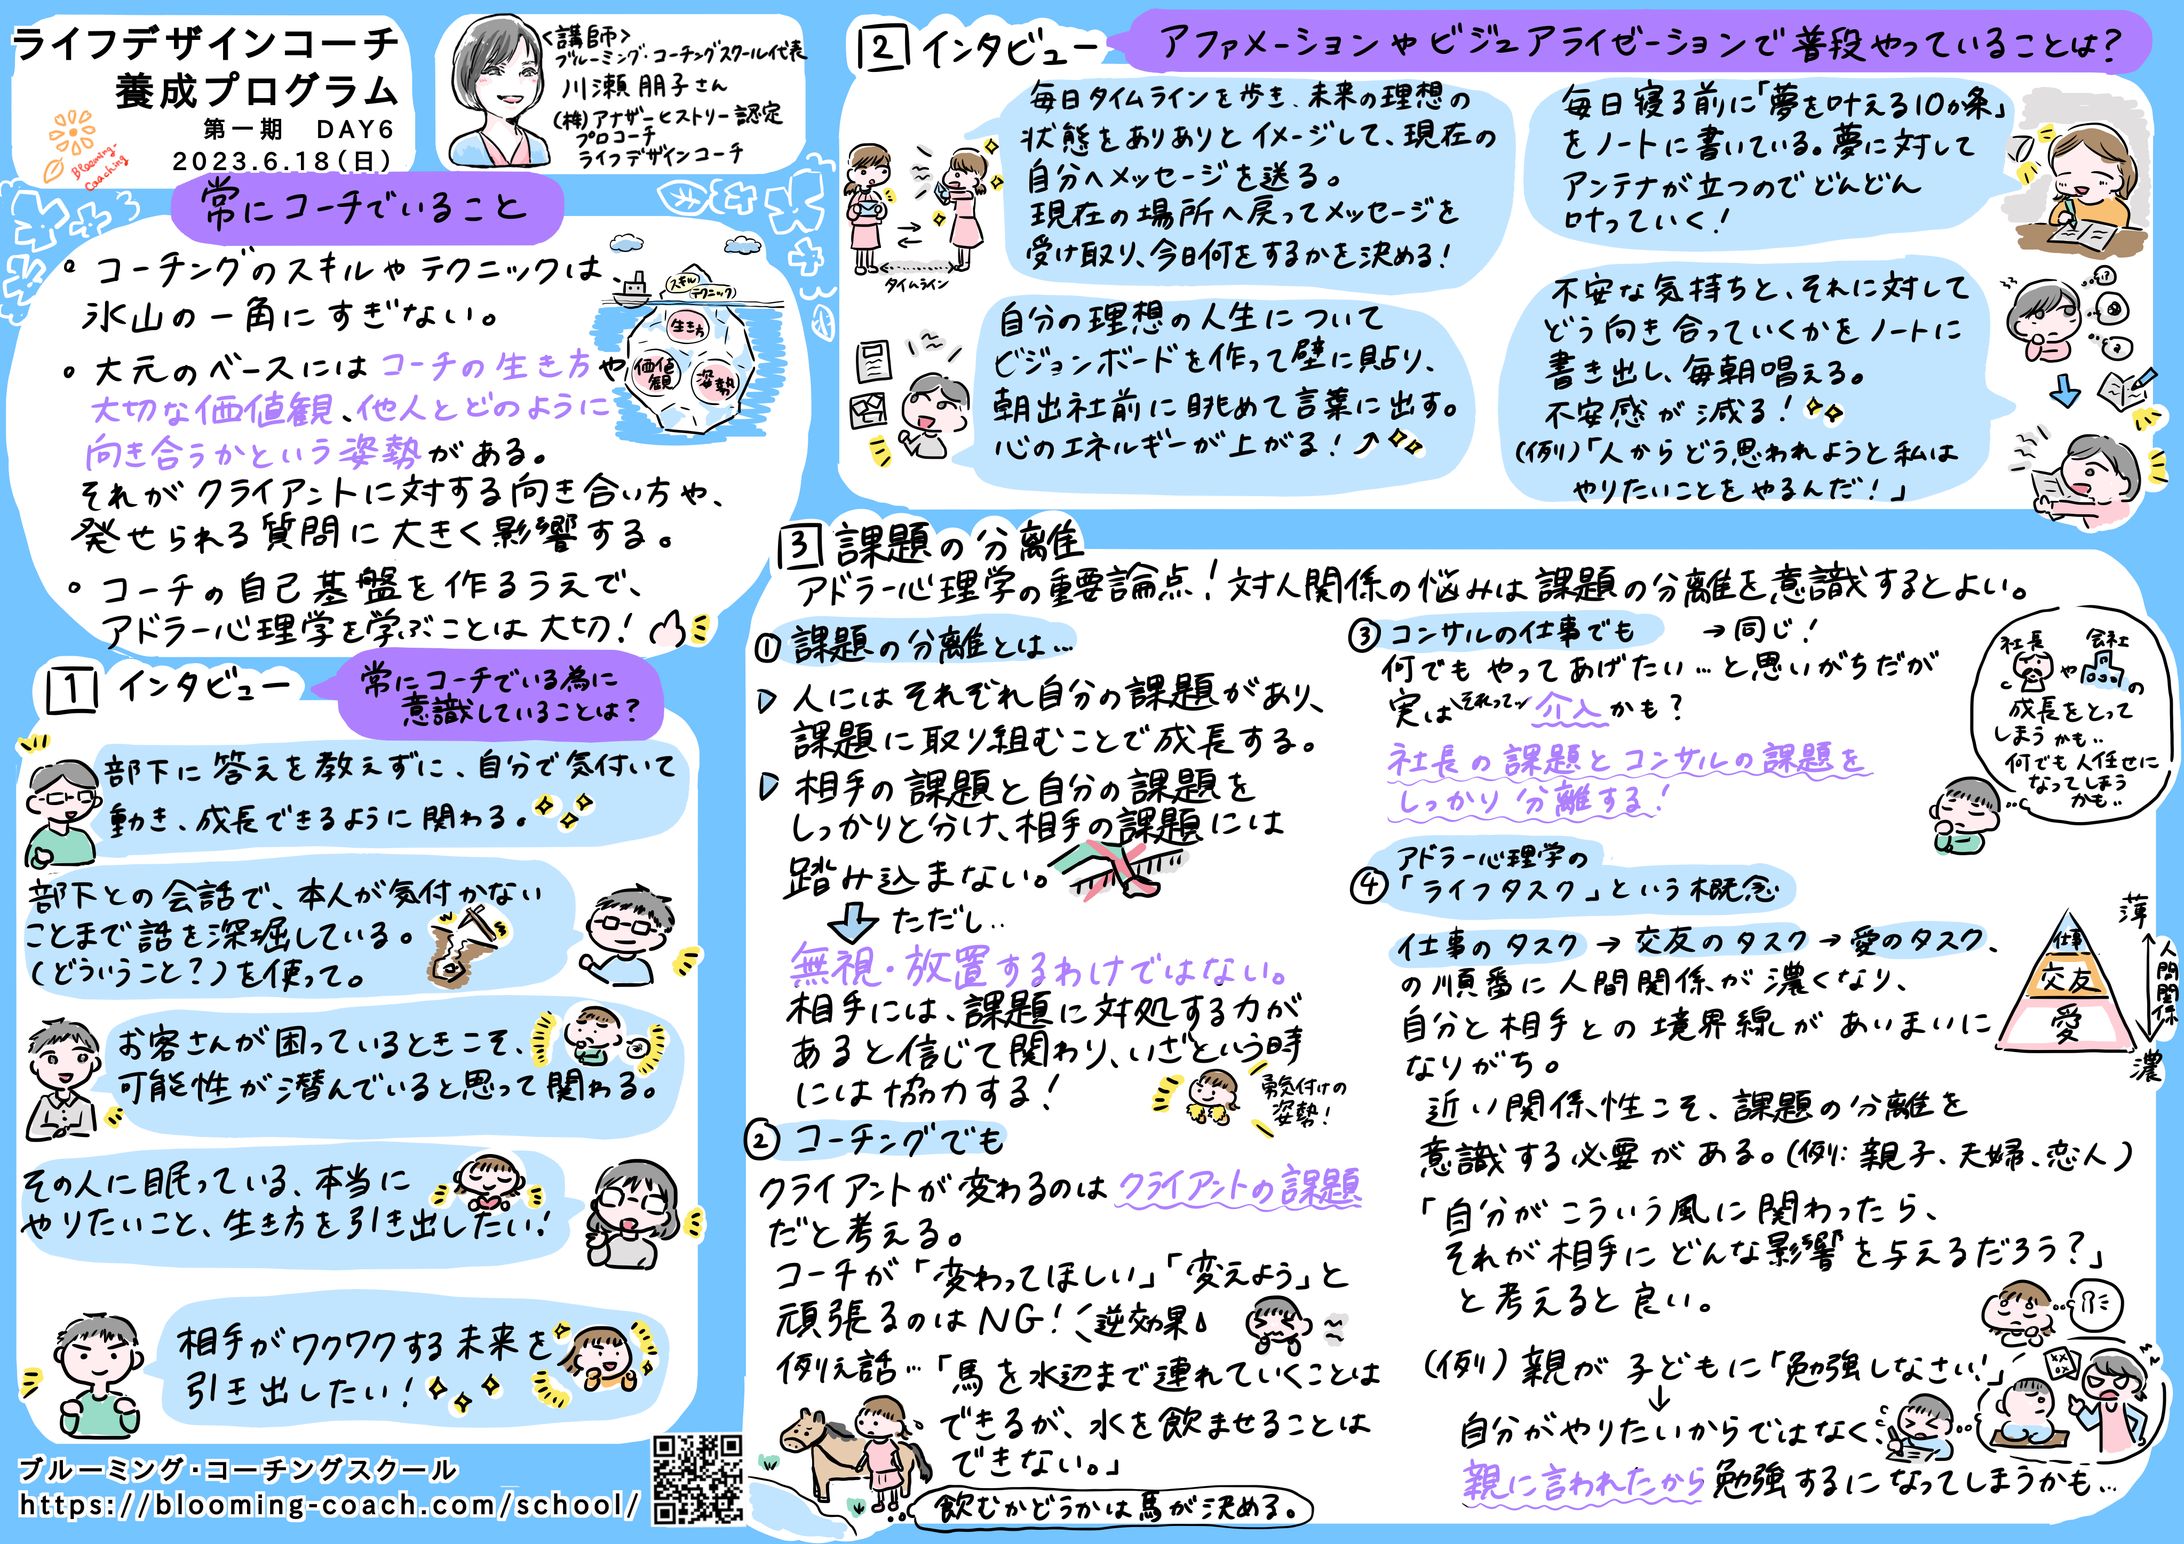 ライフデザインコーチ
養成プログラム
第一期　DAY6
2023.6.18(日)
Blooming-
Coaching
<講師>
ブルーミング・コーチングスクール代表
川瀬 朋子さん
(株)アナザーヒストリー認定
プロコーチ
ライフデザインコーチ
常にコーチでいること
・コーチングのスキルやテクニックは、
氷山の一角にすぎない。
・大元のベースにはコーチの生き方や
大切な価値観、他人とどのように
向き合うかという姿勢がある。
それがクライアントに対する向き合い方や、
発せられる質問に大きく影響する。
・コーチの自己基盤を作るうえで、
アドラー心理学を学ぶことは大切!
スキル
テクニック
生き方
価値観
姿勢
1 インタビュー
常にコーチでいる為に
意識していることは?
部下に答えを教えずに、自分で気付いて
動き、成長できるように関わる。
部下との会話で、本人が気付かない
ことまで話を深堀している。
(どういうこと?)を使って。
お客さんが困っているときこそ、
可能性が潜んでいると思って関わる。
その人に眠っている、本当に
やりたいこと、生き方を引き出したい!
相手がワクワクする未来を
引き出したい!
ブルーミング・コーチングスクール
https://blooming-coach.com/school/
2 インタビュー
アファメーションやビジュアライゼーションで普段やっていることは?
毎日タイムラインを歩き、未来の理想の
状態をありありとイメージして、現在の
自分へメッセージを送る。
現在の場所へ戻ってメッセージを
受け取り、今日何をするかを決める!
タイムライン
自分の理想の人生について
ビジョンボードを作って壁に貼り、
朝出社前に眺めて言葉に出す。
心のエネルギーが上がる!
毎日寝る前に「夢を叶える10か条」
をノートに書いている。夢に対して
アンテナが立つのでどんどん
叶っていく!
不安な気持ちと、それに対して
どう向き合っていくかをノートに
書き出し、毎朝唱える。
不安感が減る!
(例)「人からどう思われようと私は
やりたいことをやるんだ!」
3 課題の分離
アドラー心理学の重要論点!対人関係の悩みは課題の分離を意識するとよい。
① 課題の分離とは…
人にはそれぞれ自分の課題があり、
課題に取り組むことで成長する。
相手の課題と自分の課題を
しっかりと分け、相手の課題には
踏み込まない。
ただし‥
無視・放置するわけではない。
相手には、課題に対処する力が
あると信じて関わり、いざという時
には協力する!
勇気付けの
姿勢!
② コーチングでも
クライアントが変わるのはクライアントの課題
だと考える。
コーチが「変わってほしい」「変えよう」と
頑張るのはNG!逆効果
例え話…「馬を水辺まで連れていくことは
できるが、水を飲ませることは
できない。」
飲むかどうかは馬が決める。
③ コンサルの仕事でも →同じ!
何でもやってあげたい…と思いがちだが
実はそれって介入かも?
社長の課題とコンサルの課題を
しっかり分離する!
社長や会社の
成長をとって
しまうかも‥
何でも人任せに
なってしまう
かも‥
④ アドラー心理学の
「ライフタスク」という概念
仕事のタスク→交友のタスク→愛のタスク、
の順番に人間関係が濃くなり、
自分と相手との境界線があいまいに
なりがち。
仕事
交友
愛
薄
人間関係
濃
近い関係性こそ、課題の分離を
意識する必要がある。(例:親子、夫婦、恋人)
「自分がこういう風に関わったら、
それが相手にどんな影響を与えるだろう?」
と考えると良い。
(例)親が子どもに「勉強しなさい!」
↓
自分がやりたいからではなく、
親に言われたから勉強するになってしまうかも‥